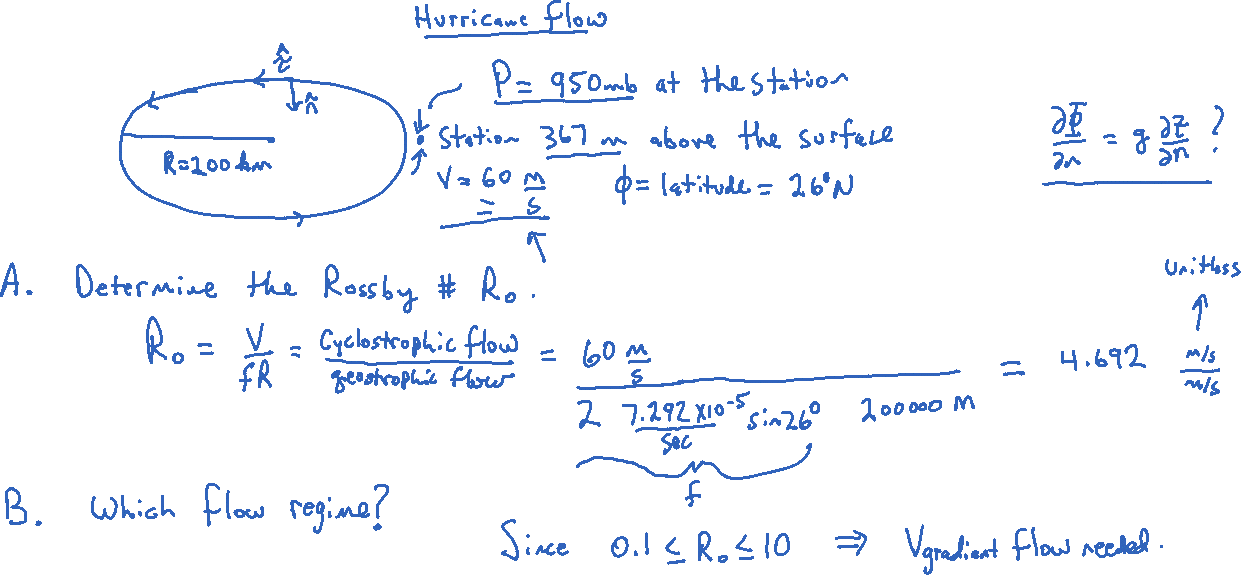 Hurricane Flow
τ̂
n̂
P = 950mb at the station
Station 367 m above the surface
R=200 km
V = 60 m/s
ϕ = latitude = 26°N
∂Φ/∂n = g ∂z/∂n ?
A. Determine the Rossby # R₀.
unitless
R₀ = V/fR = Cyclostrophic flow/geostrophic flow = 60 m/s / 2 7.292 x10⁻⁵/sec sin26° 200000 m = 4.692 m/s / m/s
f
B. Which flow regime?
Since 0.1 ≤ R₀ ≤ 10 ⇒ Vgradient flow needed.